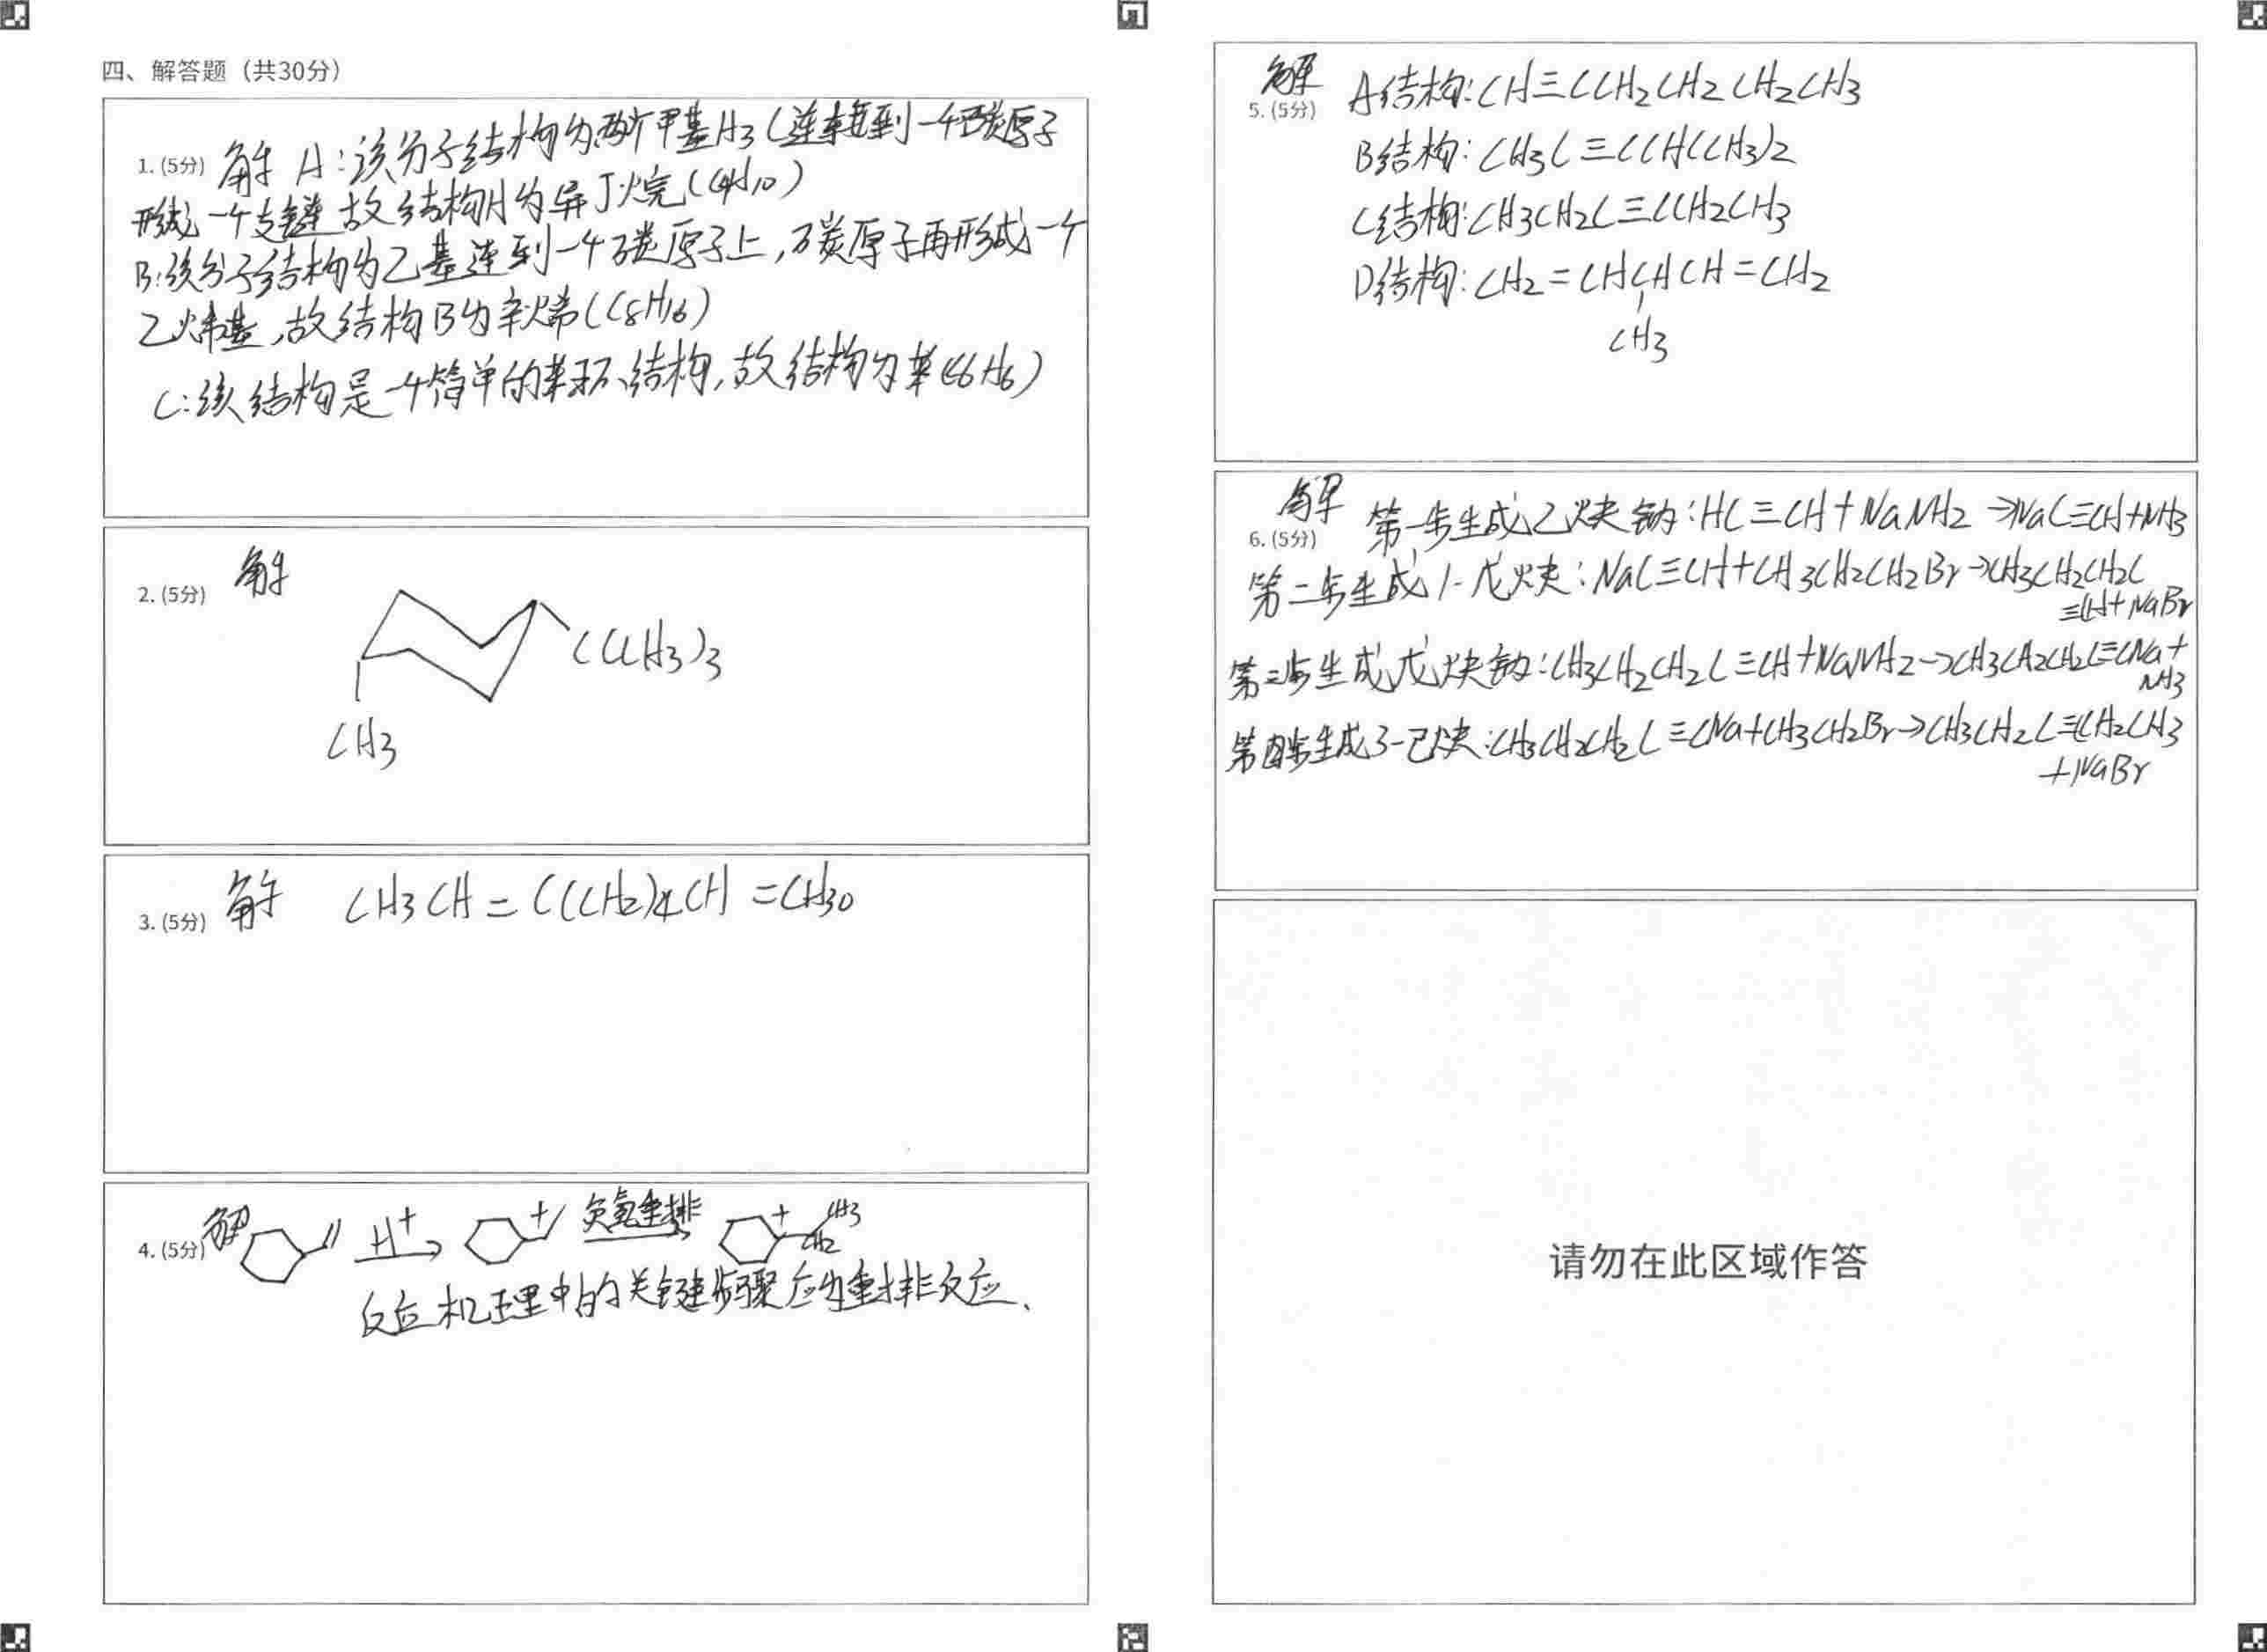 四、解答题（共30分）
1. (5分) 解 A:该分子结构为两个甲基H3C连接到一个碳原子
形成一个支链 故结构A为异丁烷(C4H10)
B:该分子结构为乙基连到一个碳原子上,碳原子再形成一个
乙烯基,故结构B为辛烯(C8H16)
C:该结构是一个简单的苯环结构,故结构为苯(C6H6)
2. (5分) 解
C(CH3)3
CH3
3. (5分) 解 CH3CH=C(CH2)4CH=CH30
4. (5分) 解 H+ + 负氢重排 + CH3
CH2
反应机理中的关键步骤应为重排反应、
解
5. (5分) A结构:CH≡CCH2CH2CH2CH3
B结构:CH3C≡CCH(CH3)2
C结构:CH3CH2C≡CCH2CH3
D结构:CH2=CHCHCH=CH2
CH3
解
6. (5分) 第一步生成乙炔钠:HC≡CH+NaNH2→NaC≡CH+NH3
第二步生成1-戊炔:NaC≡CH+CH3CH2CH2Br→CH3CH2CH2C
≡CH+NaBr
第三步生成戊炔钠:CH3CH2CH2C≡CH+NaNH2→CH3CH2CH2C≡CNa+
NH3
第四步生成3-己炔:CH3CH2CH2C≡CNa+CH3CH2Br→CH3CH2C≡CH2CH3
+NaBr
请勿在此区域作答